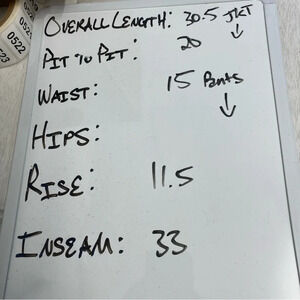 OVERALL LENGTH: 30.5 JKT
PIT TO PIT: 20
WAIST: 15 Pants
HIPS:
RISE: 11.5
INSEAM: 33
0522